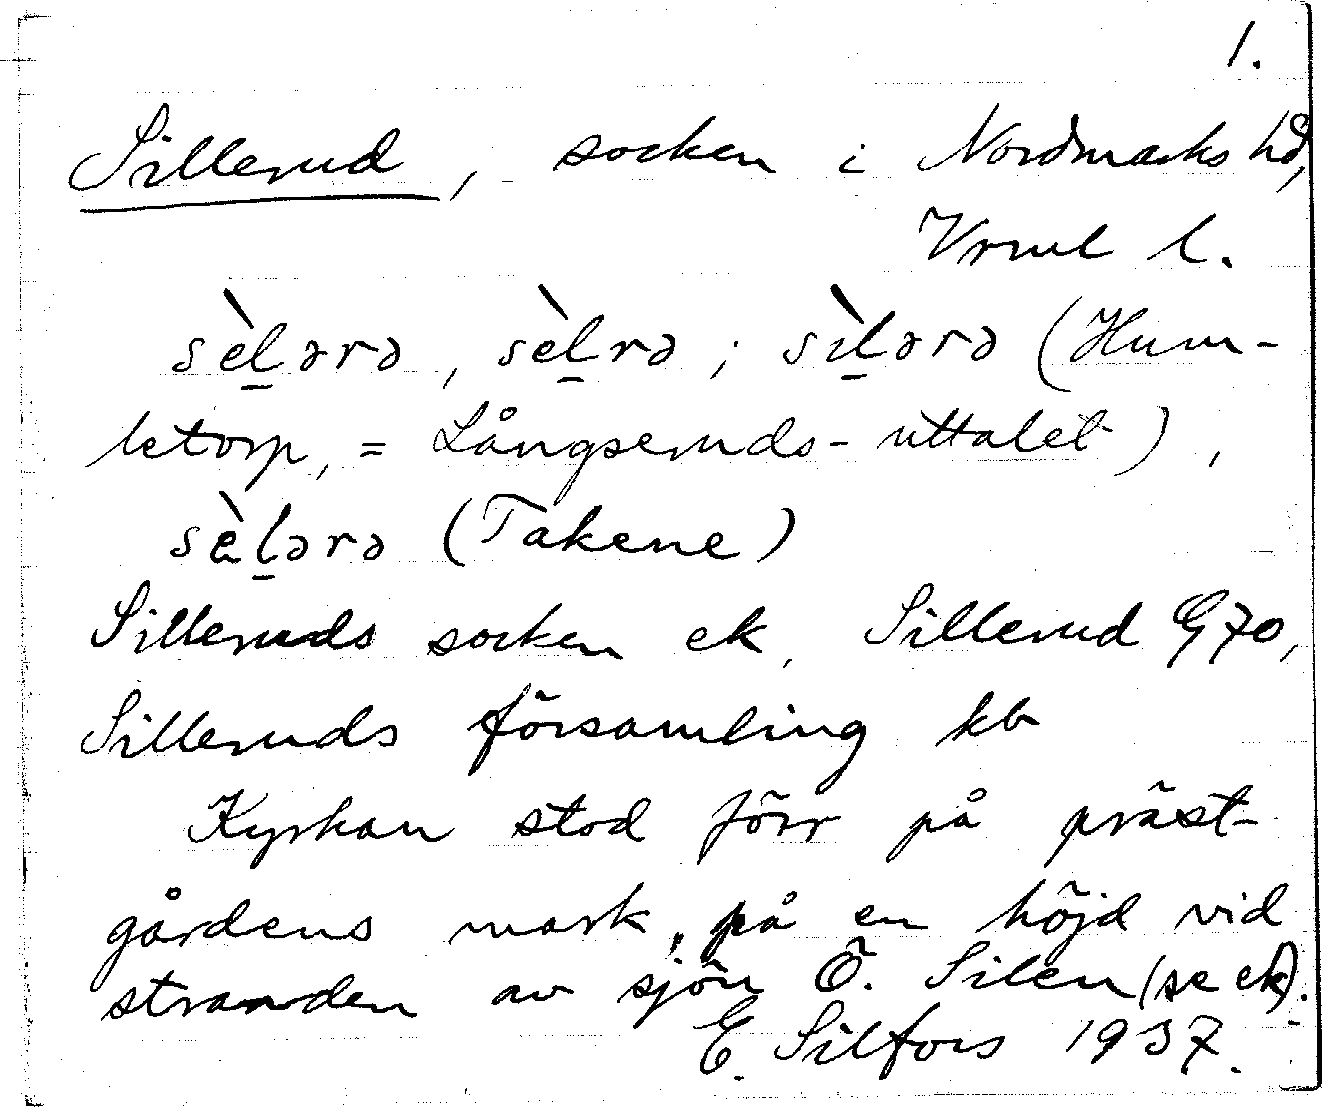 1.
Sillerud, socken i Nordmarks hd,
Vrml l.
sèl̠ərə, sèl̠rə; sìl̠ərə (Hum-
letorp, = Långseruds-uttalet),
sèl̠ərə (Takene)
Silleruds socken ek, Sillerud G70,
Silleruds församling kb
Kyrkan stod förr på präst-
gårdens mark, på en höjd vid
stranden av sjön Ö. Silen (se ek).
E. Silfors 1937.